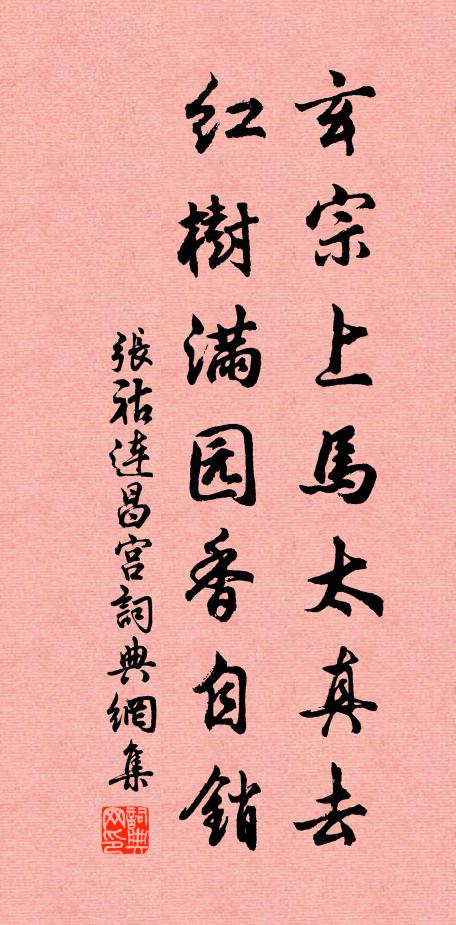 玄宗上馬太真去
紅樹滿园香自銷
張祜連昌宮詞典網集
詞典
网印